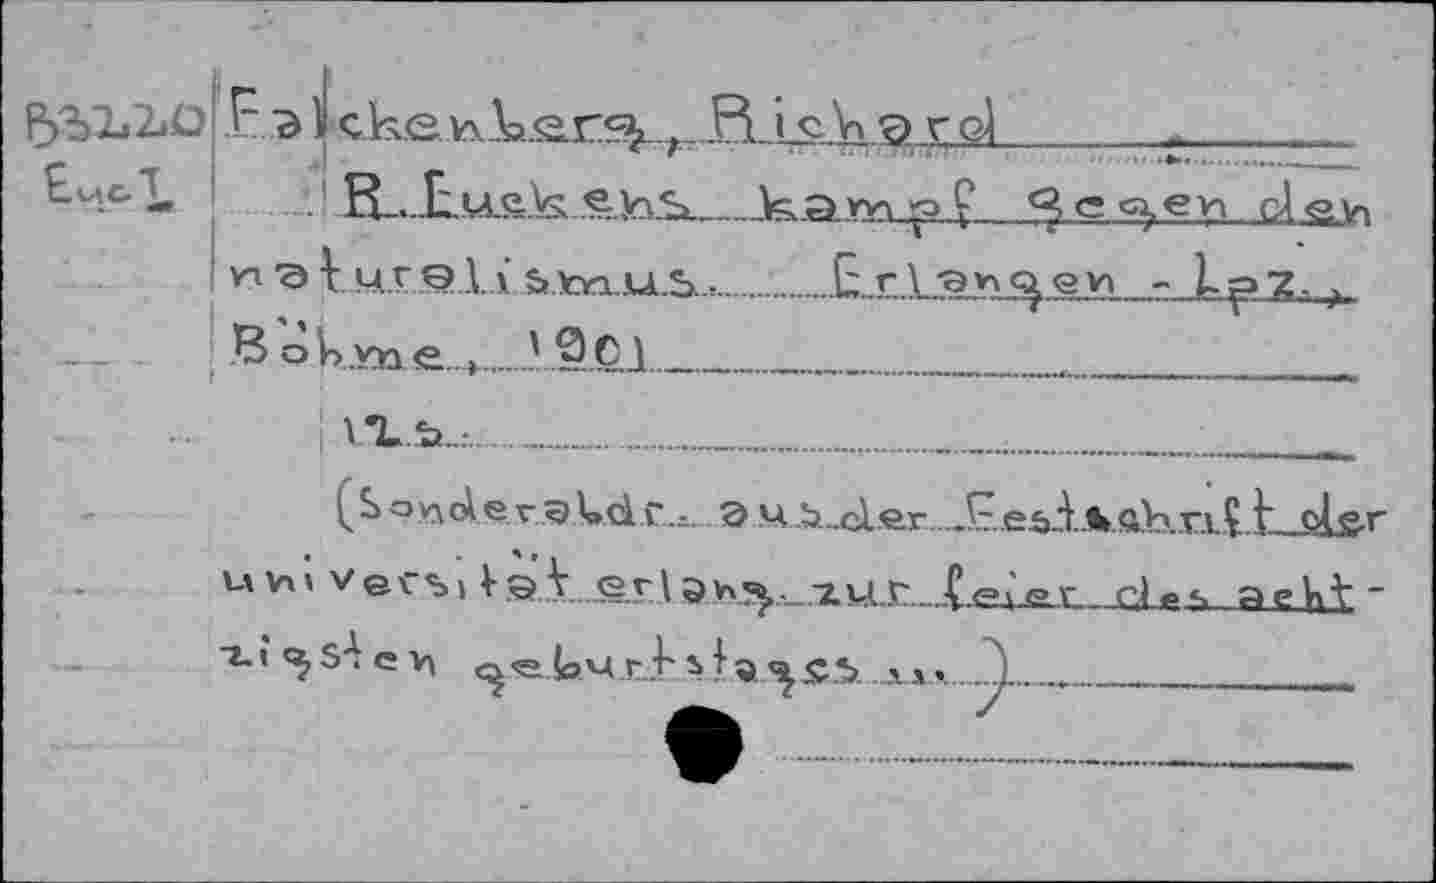 B3220 Falckenberg, Richard
Euc1 R. Euckens kampf gegen den
naturalismus. Erlangen - Lpz.,
Böhme, 1901
12 s.
(Sonderabdr. aus der Festschrift der
universität erlang. zur feier des acht-
zigsten geburtstages ...)